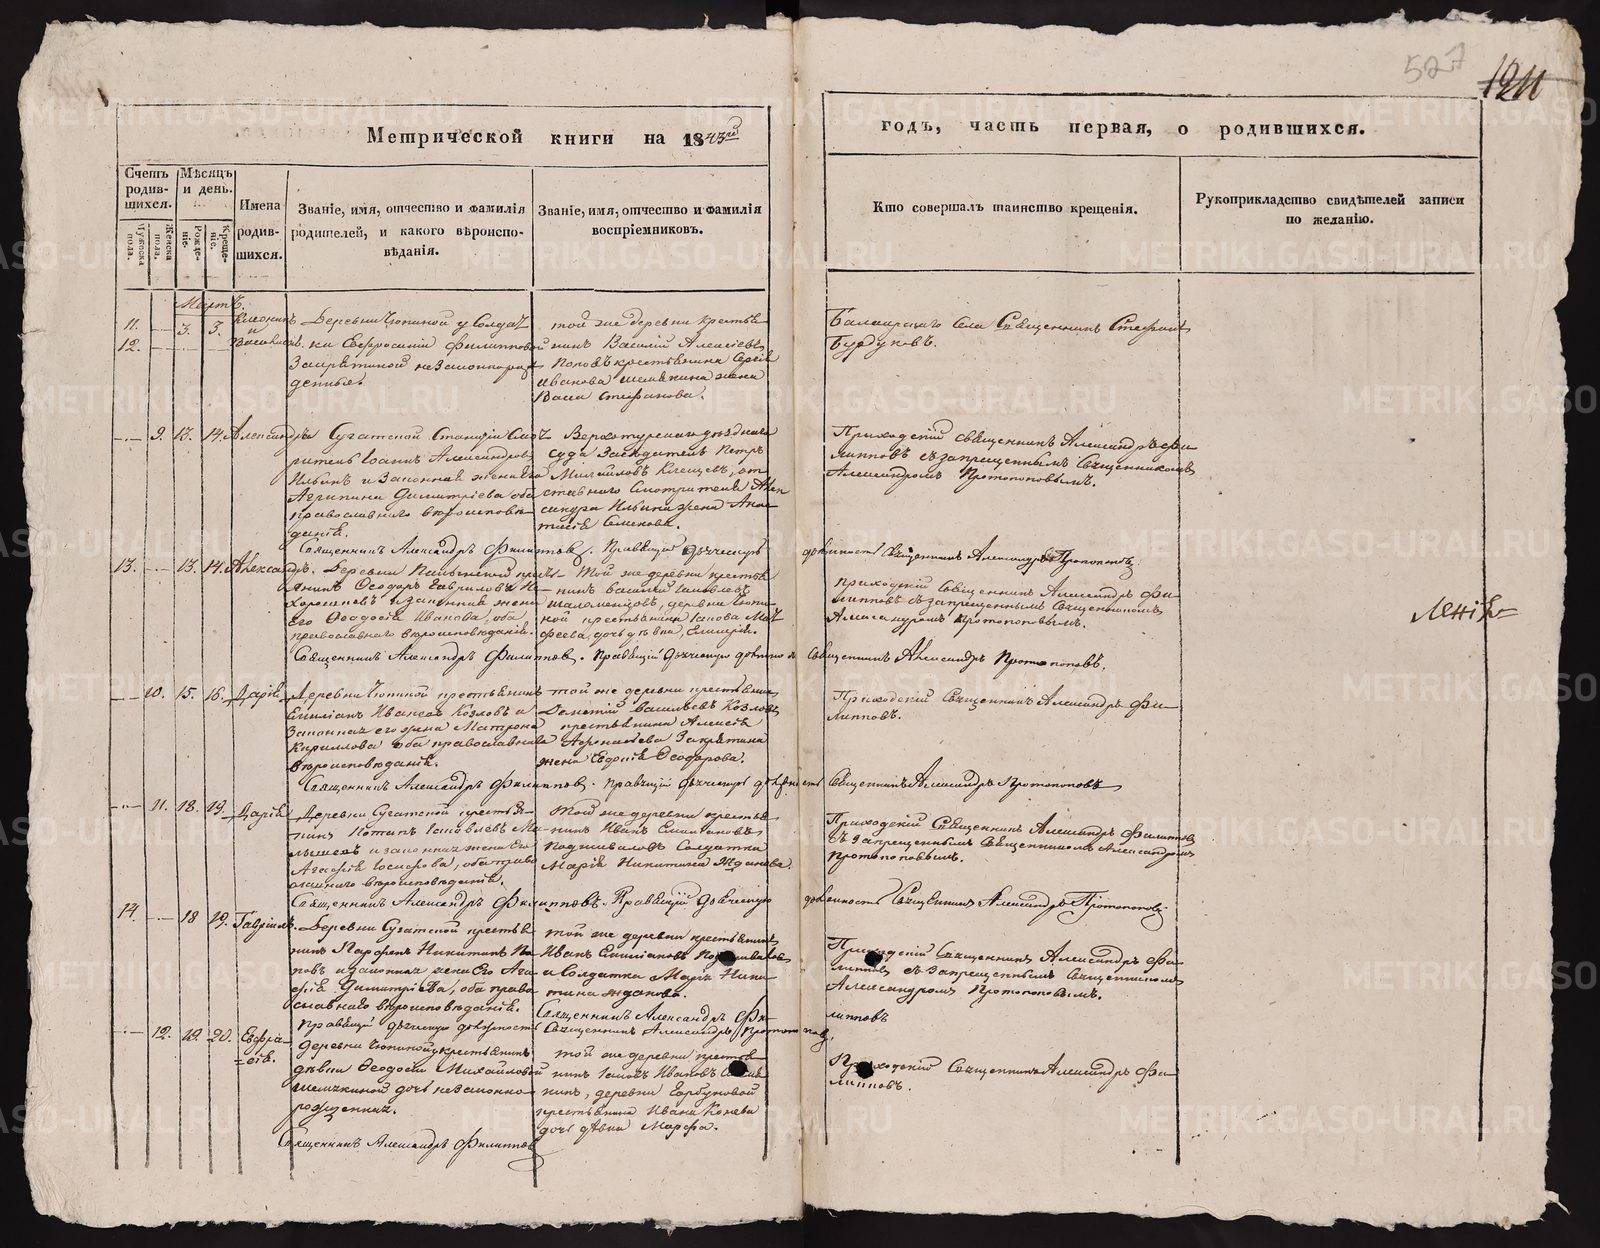 527
1211
Метрической книги на 1843й
годъ, часть первая, о родившихся.
Счетъ родив-шихся.
Мѣсяцъ и день.
Имена родив-шихся.
Званіе, имя, отчество и фамилія родителей, и какого вѣроиспо-вѣданія.
Званіе, имя, отчество и фамилія воспріемниковъ.
Кто совершалъ таинство крещенія.
Рукоприкладство свидѣтелей записи по желанію.
Мужеска пола.
Женска пола.
Рожде-ніе.
Креще-ніе.
Мартъ.
11.
12.
3. 3.
и
Деревни у Солдат
ки Евфросиніи Филипповой
незаконнорож
денные.
той же деревни крестья
нинъ Василій Алексѣевъ
Поповъ крестьянина Сергія
Иванова жена
Васса Стефанова.
Села Священникъ Стефанъ
9. 13. 14. Александра
Сугатской Станціи Смот
ритель Іоаннъ Александровъ
Ильинъ и законная жена его
Агрипина Димитріева оба
православнаго вѣроисповѣ
данія.
Верхотурскаго уѣзднаго
суда Засѣдатель Петръ
Михайловъ Клещевъ, от
ставнаго Смотрителя Алек
сандра Ильина жена Анас
тасія Семенова.
Приходскій священникъ Александръ Фи
липповъ съ запрещеннымъ Священникомъ
Александромъ Протопоповымъ.
Священникъ Александръ Филипповъ. Правящій дьяческую должность Священникъ Александръ Протопоповъ.
13. 13. 14. Александръ.
Деревни кресть
янинъ Ѳеодоръ Гавриловъ
и законная жена
его Ѳеодосія Иванова, оба
православнаго вѣроисповѣданія.
Той же деревни крестья
нинъ Василій Іаковлевъ
деревни
кой крестьянина Іакова Мат
феева дочь дѣвица,
Приходскій Священникъ Александръ Фи
липповъ съ запрещеннымъ Священникомъ
Александромъ Протопоповымъ.
Священникъ Александръ Филипповъ. Правящій дьяческую должность Священникъ Александръ Протопоповъ.
10. 15. 16. Дарія
Деревни крестьянинъ
Емиліанъ Ивановъ Козловъ и
законная его жена Матрона
Кириллова оба православнаго
вѣроисповѣданія.
той же деревни крестьянинъ
Васильевъ Козловъ
крестьянина Алексія
жена Ѳеодорова.
Приходскій Священникъ Александръ Фи
липповъ.
Священникъ Александръ Филипповъ. Правящій дьяческую должность Священникъ Александръ Протопоповъ
11. 18. 19. Дарія
Деревни Сугатской крестья
нинъ Потапъ Іаковлевъ Ма
лышевъ и законная жена его
Агафія Іосифова, оба право
славнаго вѣроисповѣданія.
Той же деревни крестья
нинъ Иванъ Емиліановъ
Подшиваловъ Солдатка
Марія Никитина Жданова.
Приходскій Священникъ Александръ Филипповъ
съ запрещеннымъ Священникомъ Александромъ
Протопоповымъ.
Священникъ Александръ Филипповъ. Правящій дьяческую должность Священникъ Александръ Протопоповъ.
14. 18 19. Гавріилъ.
Деревни Сугатской крестья
нинъ Парфенъ Никитинъ По
повъ и законная жена его Ага
фія Димитріева, оба право
славнаго вѣроисповѣданія.
той же деревни крестьянинъ
Иванъ Емиліановъ Подшиваловъ
и Солдатка Марія Ники
тина Жданова.
Приходскій Священникъ Александръ Фи
липповъ съ запрещеннымъ Священникомъ
Александромъ Протопоповымъ.
Священникъ Александръ Фи
липповъ
Правящій дьяческую должность Священникъ Александръ Протопоповъ.
12. 19. 20.
деревни крестьянской
дѣвки Ѳеодосіи Михайловой
дочь незаконно
рожденная.
той же деревни крестья
нинъ Іаковъ Ивановъ
нинъ, деревни Горбуновой
крестьянина Ивана Конева
дочь дѣвка Марфа.
Приходскій Священникъ Александръ Фи
липповъ.
Священникъ Александръ Филипповъ
METRIKI.GASO-URAL.RU